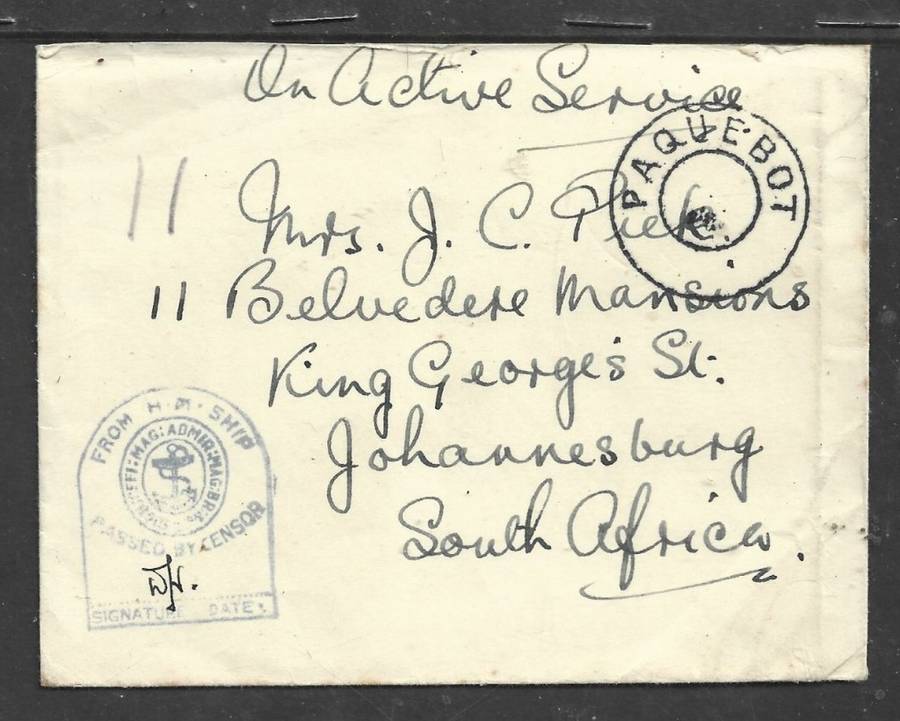 On Active Service
PAQUEBOT
11
Mrs. J. C.
11 Belvedere Mansions
King George's St.
Johannesburg
South Africa.
FROM H.M. SHIP
PASSED BY CENSOR
SIGNATURE DATE